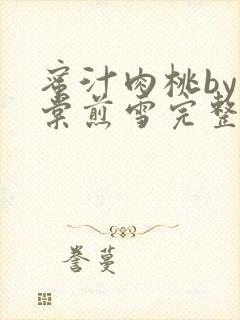 蜜汁肉桃by
棠煎雪完整
誉蔓